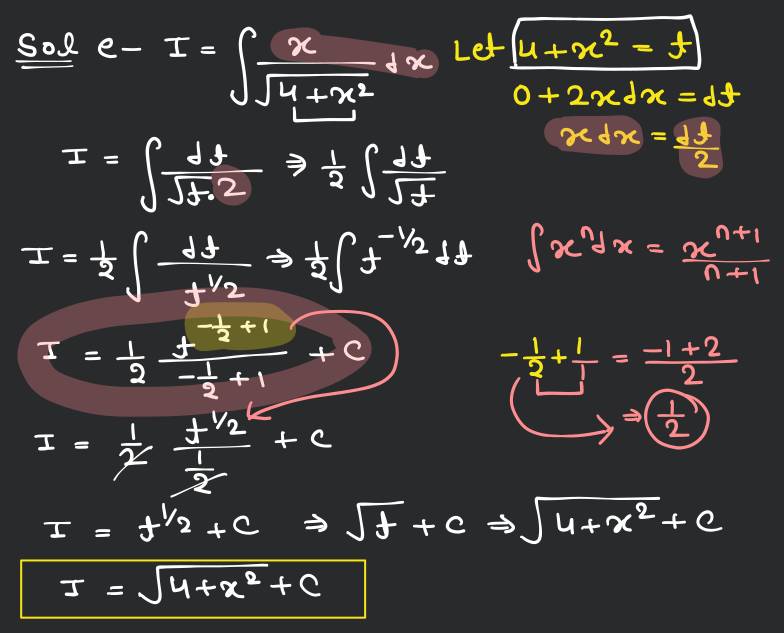 Sol e- I = ∫ x/√(4+x²) dx Let 4+x² = t
0+2xdx = dt
xdx = dt/2
I = ∫ dt/(√t·2) ⇒ 1/2 ∫ dt/√t
I = 1/2 ∫ dt/t^(1/2) ⇒ 1/2 ∫ t^(-1/2) dt ∫xⁿdx = x^(n+1)/(n+1)
I = 1/2 t^(-1/2+1)/(-1/2+1) + C -1/2+1/1 = (-1+2)/2
⇒ 1/2
I = 1/2 t^(1/2)/(1/2) + C
I = t^(1/2) + C ⇒ √t + C ⇒ √(4+x²) + C
I = √(4+x²) + C